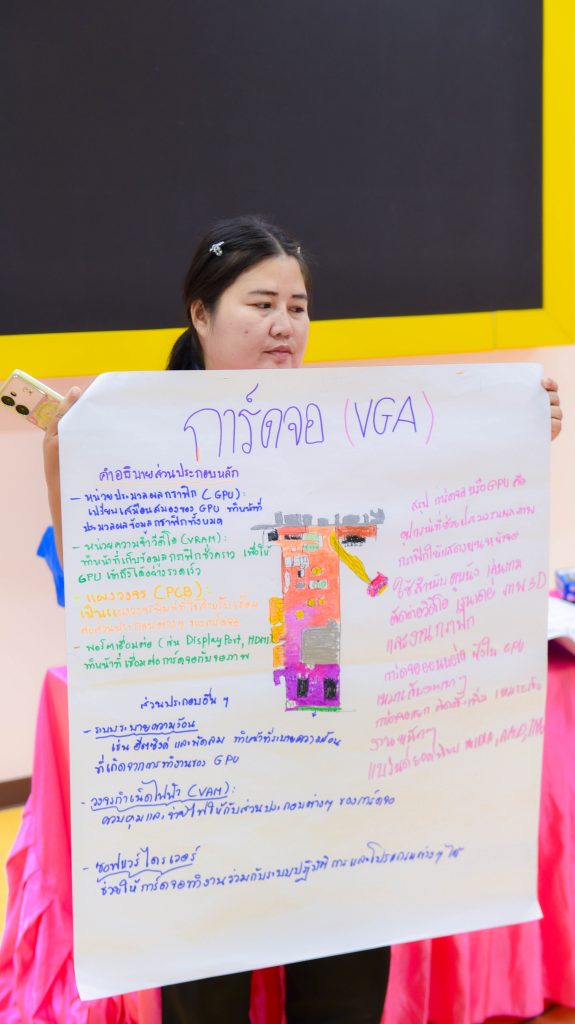 การ์ดจอ (VGA)
คำอธิบายส่วนประกอบหลัก
- หน่วยประมวลผลกราฟิก (GPU):
เปรียบเสมือนสมองของ GPU ทำหน้าที่
ประมวลผลข้อมูลกราฟิกทั้งหมด
- หน่วยความจำวิดีโอ (VRAM):
ทำหน้าที่เก็บข้อมูลกราฟิกชั่วคราว เพื่อให้
GPU เข้าถึงได้อย่างรวดเร็ว
- แผงวงจร (PCB):
เป็นแผงวงจรพิมพ์ที่ใช้สำหรับเชื่อม
ต่อส่วนประกอบต่างๆ ของการ์ดจอ
- พอร์ตเชื่อมต่อ (เช่น DisplayPort, HDMI)
ทำหน้าที่เชื่อมต่อการ์ดจอกับจอภาพ
ส่วนประกอบอื่น ๆ
- ระบบระบายความร้อน
เช่น ฮีตซิงค์ และพัดลม ทำหน้าที่ระบายความร้อน
ที่เกิดจากการทำงานของ GPU
- วงจรกำเนิดไฟฟ้า (VRM):
ควบคุมและจ่ายไฟให้กับส่วนประกอบต่างๆ ของการ์ดจอ
- ซอฟแวร์ไดรเวอร์
ช่วยให้การ์ดจอทำงานร่วมกับระบบปฏิบัติการ และโปรแกรมต่างๆ ได้
สรุป การ์ดจอหรือ GPU คือ
อุปกรณ์ที่ช่วยประมวลผลภาพ
กราฟิกให้แสดงบนหน้าจอ
ใช้สำหรับดูหนัง เล่นเกม
ตัดต่อวิดีโอ ภาพ 3D
และงานกราฟิก
การ์ดจอออนบอร์ด ฝังใน CPU
เหมาะกับงานเบาๆ
การ์ดจอแยก
งานหนักๆ
แบรนด์ยอดนิยม NVIDIA, AMD,